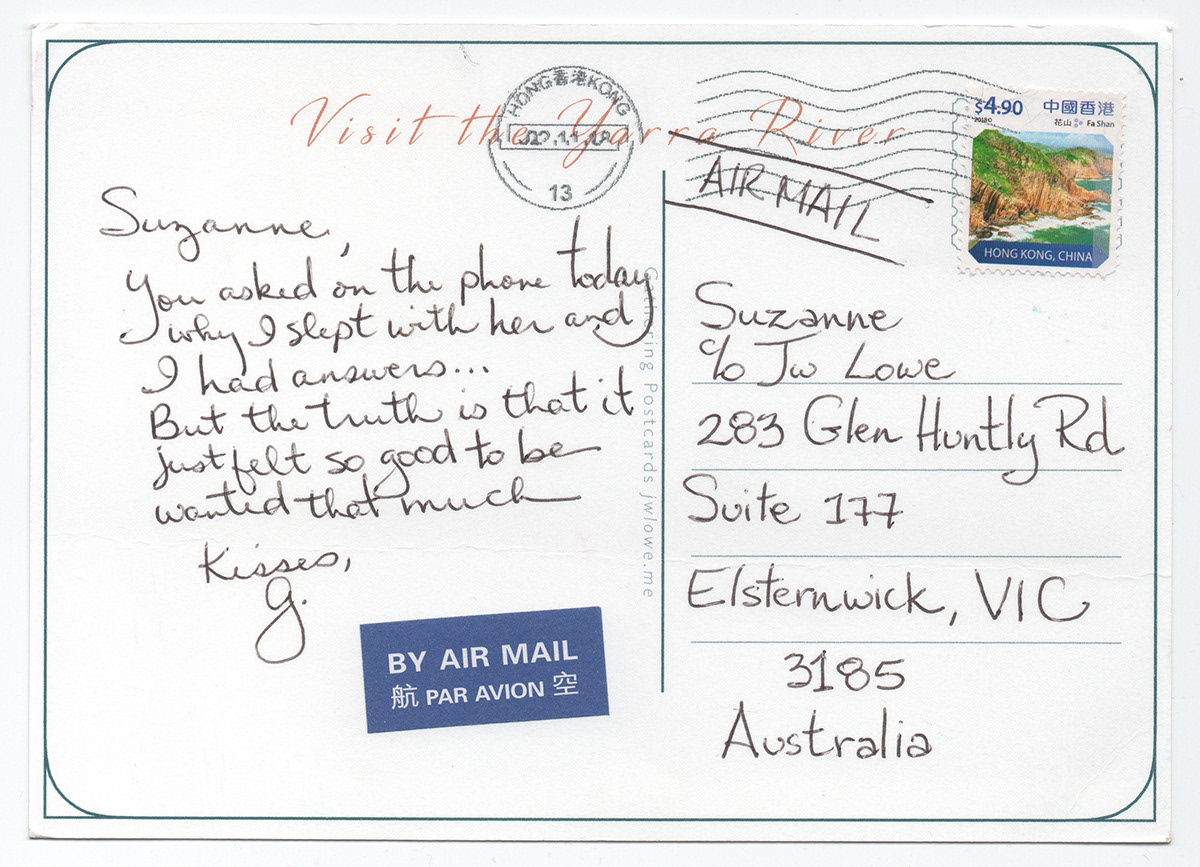 Visit the Yarra River
HONG 香港 KONG
13
AIR MAIL
$4.90 中國香港
2018©
花山 Fa Shan
HONG KONG, CHINA
Suzanne,
You asked on the phone today
why I slept with her and
I had answers...
But the truth is that it
just felt so good to be
wanted that much
Kisses,
G.
BY AIR MAIL
航 PAR AVION 空
Postcards jwlowe.me
Suzanne
c/o JW Lowe
283 Glen Huntly Rd
Suite 177
Elsternwick, VIC
3185
Australia